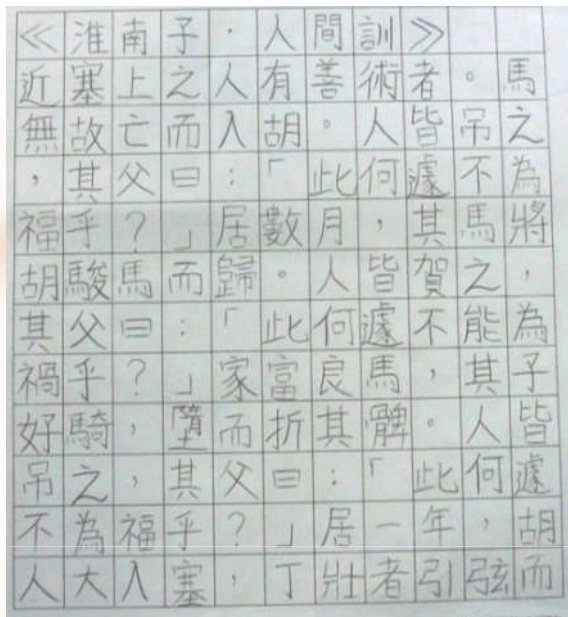 ≪淮南子·人間訓≫
近塞上之人有善術者。馬
無故亡而入胡。人皆吊之
，其父曰：「此何遽不為
福乎？」居數月，其馬將
胡駿馬而歸。人皆賀之，
其父曰：「此何遽不能為
禍乎？」家富良馬，其子
好騎，墮而折其髀。人皆
吊之，其父曰：「此何遽
不為福乎？」居一年，胡
人大入塞，丁壯者引弦而